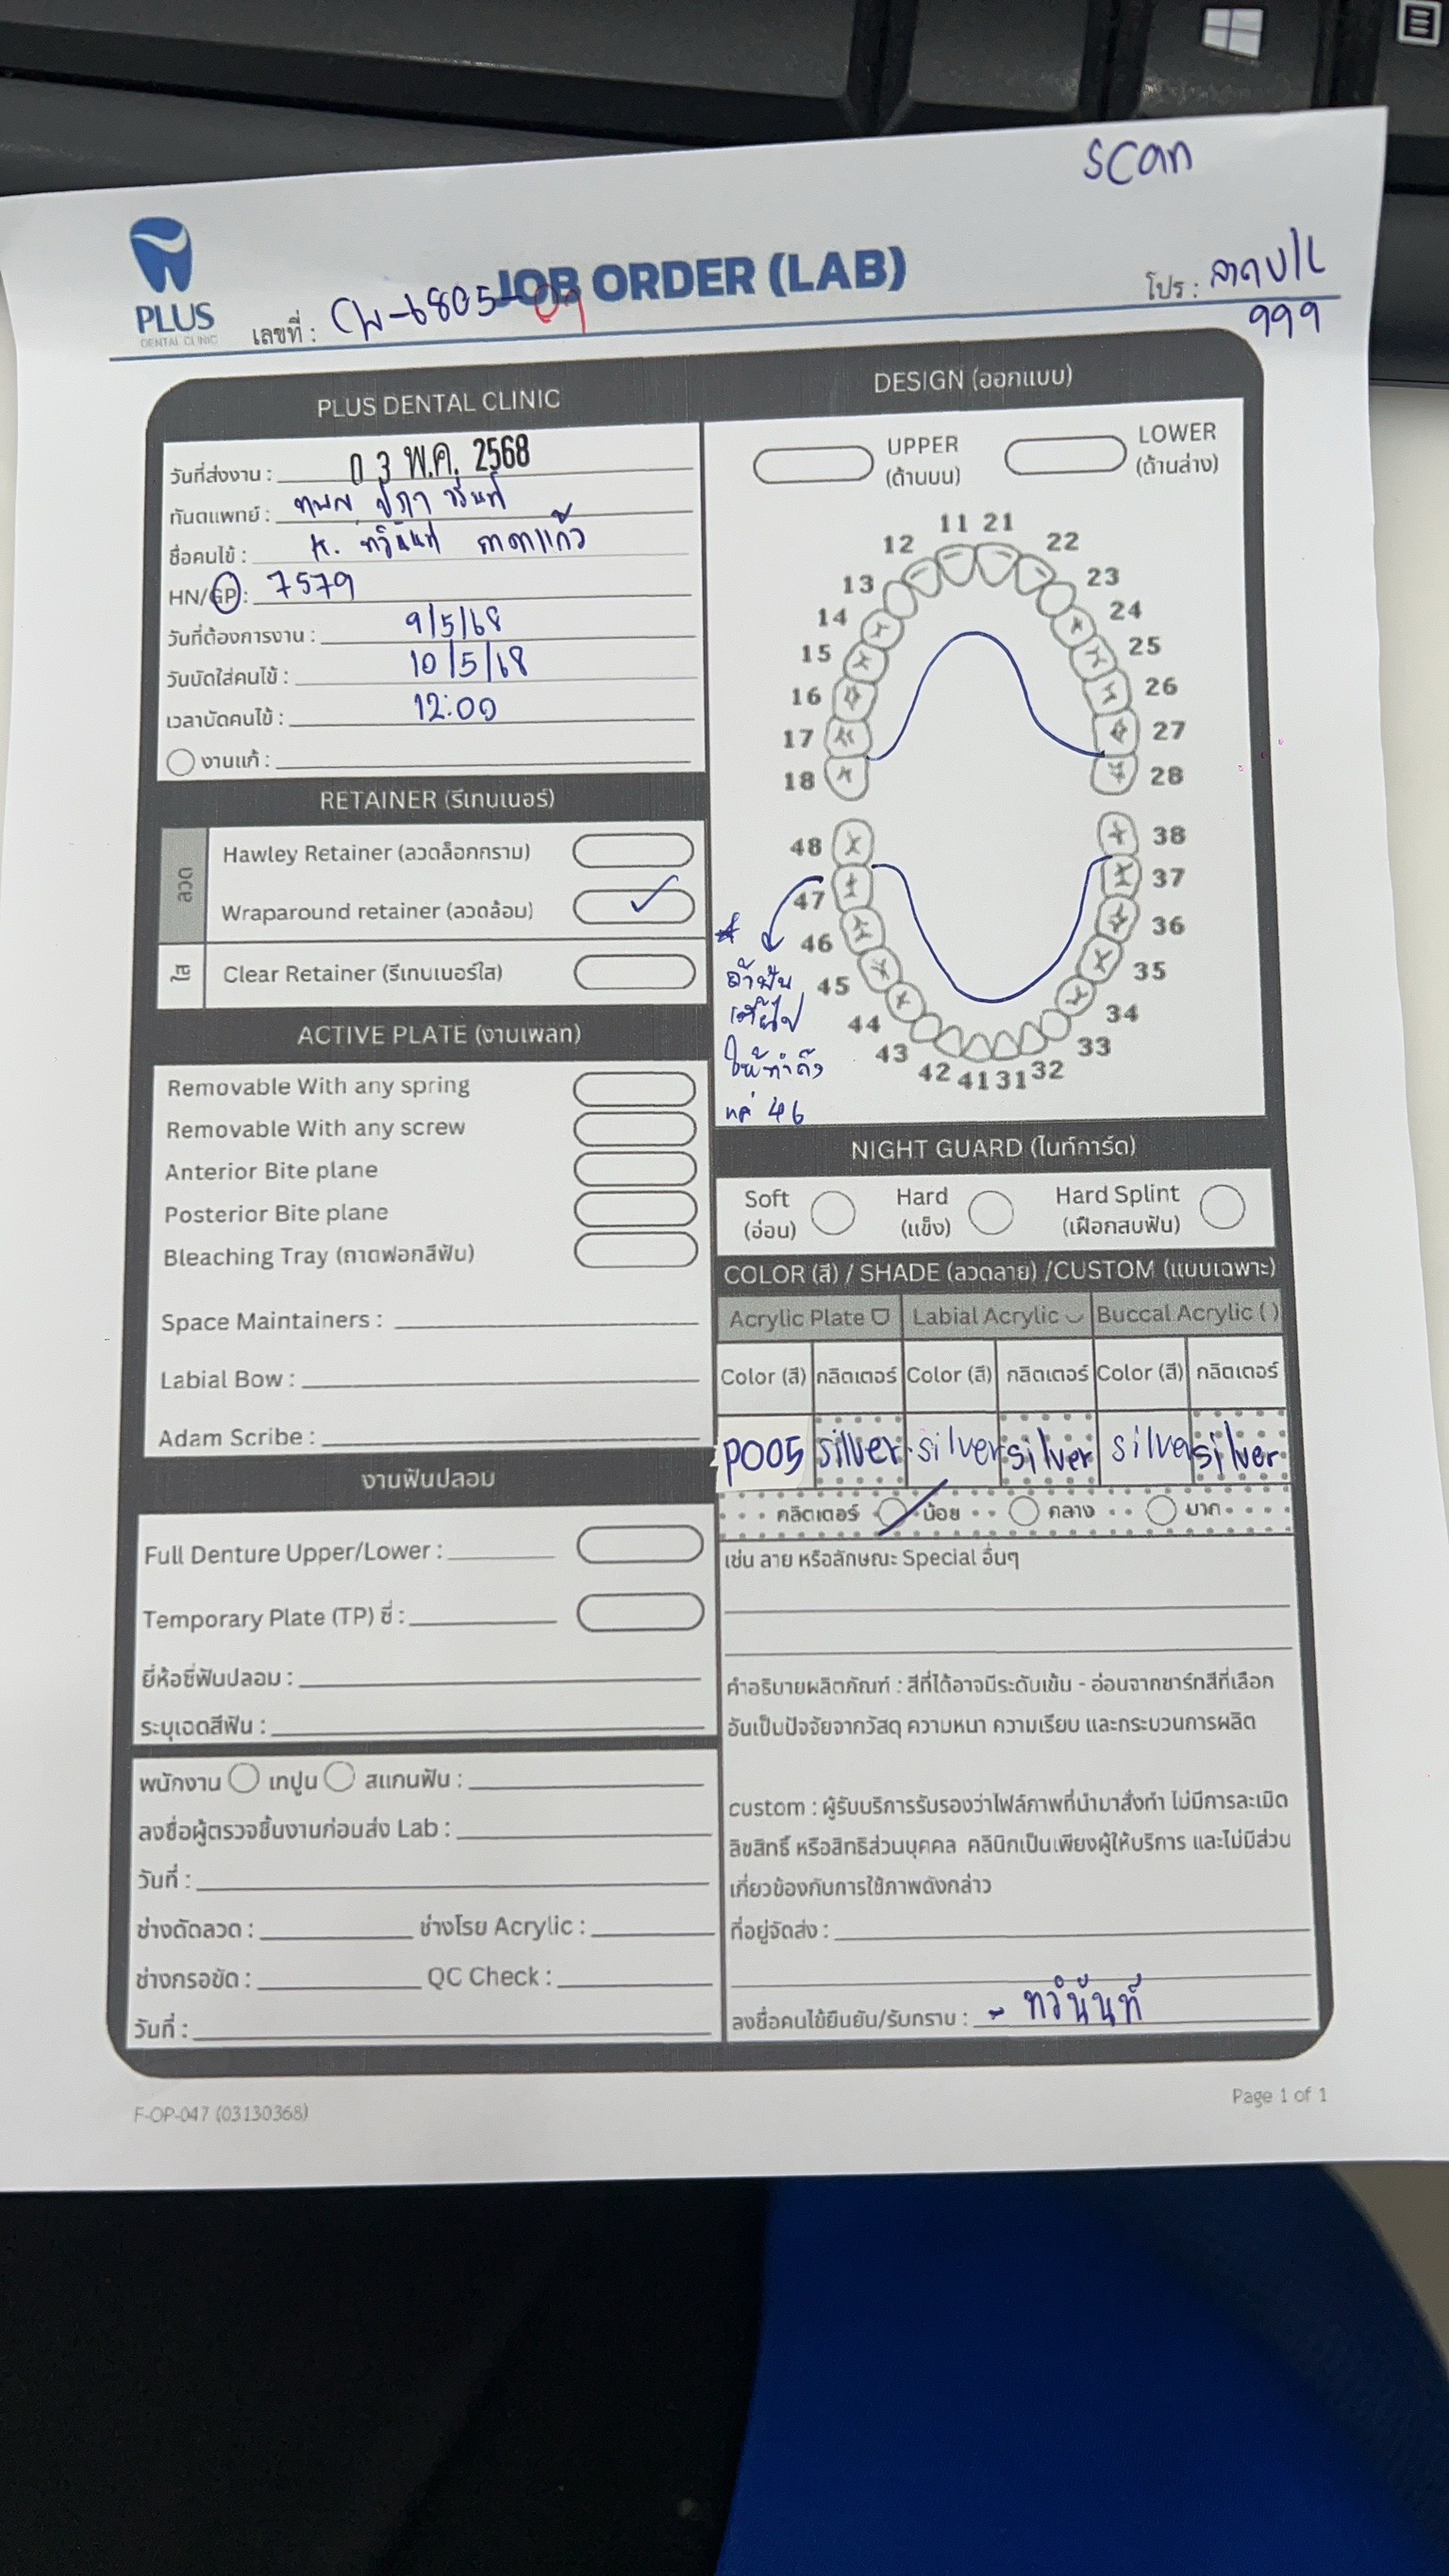 scan
PLUS
DENTAL CLINIC
JOB ORDER (LAB)
เลขที่ : CW-6805-09
โปร : ลาดU/L
999
PLUS DENTAL CLINIC
วันที่ส่งงาน : 03 พ.ค. 2568
ทันตแพทย์ :
ชื่อคนไข้ : K. ทวินันท์
HN/GP : 7579
วันที่ต้องการงาน : 9/5/68
วันนัดใส่คนไข้ : 10/5/68
เวลานัดคนไข้ : 12:00
งานแก้ :
RETAINER (รีเทนเนอร์)
ลวด
Hawley Retainer (ลวดล็อกกราม)
Wraparound retainer (ลวดล้อม)
ใส
Clear Retainer (รีเทนเนอร์ใส)
ACTIVE PLATE (งานเพลท)
Removable With any spring
Removable With any screw
Anterior Bite plane
Posterior Bite plane
Bleaching Tray (ถาดฟอกสีฟัน)
Space Maintainers :
Labial Bow :
Adam Scribe :
งานฟันปลอม
Full Denture Upper/Lower :
Temporary Plate (TP) ซี่ :
ยี่ห้อซี่ฟันปลอม :
ระบุเฉดสีฟัน :
พนักงาน เทปูน สแกนฟัน :
ลงชื่อผู้ตรวจชิ้นงานก่อนส่ง Lab :
วันที่ :
ช่างดัดลวด : ช่างโรย Acrylic :
ช่างกรอขัด : QC Check :
วันที่ :
DESIGN (ออกแบบ)
UPPER
(ด้านบน)
LOWER
(ด้านล่าง)
11 21
12 22
13 23
14 24
15 25
16 26
17 27
18 28
48 38
47 37
46 36
45 35
44 34
43 33
42 41 31 32
ถ้าฟัน
เตี้ยไป
ให้ทำถึง
แค่ 46
NIGHT GUARD (ไนท์การ์ด)
Soft
(อ่อน)
Hard
(แข็ง)
Hard Splint
(เฝือกสบฟัน)
COLOR (สี) / SHADE (ลวดลาย) /CUSTOM (แบบเฉพาะ)
Acrylic Plate Labial Acrylic Buccal Acrylic ( )
Color (สี) กลิตเตอร์ Color (สี) กลิตเตอร์ Color (สี) กลิตเตอร์
P005 silver silver silver silver silver
กลิตเตอร์ น้อย กลาง มาก
เช่น ลาย หรือลักษณะ Special อื่นๆ
คำอธิบายผลิตภัณฑ์ : สีที่ได้อาจมีระดับเข้ม - อ่อนจากชาร์ทสีที่เลือก
อันเป็นปัจจัยจากวัสดุ ความหนา ความเรียบ และกระบวนการผลิต
custom : ผู้รับบริการรับรองว่าไฟล์ภาพที่นำมาสั่งทำ ไม่มีการละเมิด
ลิขสิทธิ์ หรือสิทธิส่วนบุคคล คลินิกเป็นเพียงผู้ให้บริการ และไม่มีส่วน
เกี่ยวข้องกับการใช้ภาพดังกล่าว
ที่อยู่จัดส่ง :
ลงชื่อคนไข้ยืนยัน/รับทราบ : - ทวินันท์
F-OP-047 (03130368)
Page 1 of 1